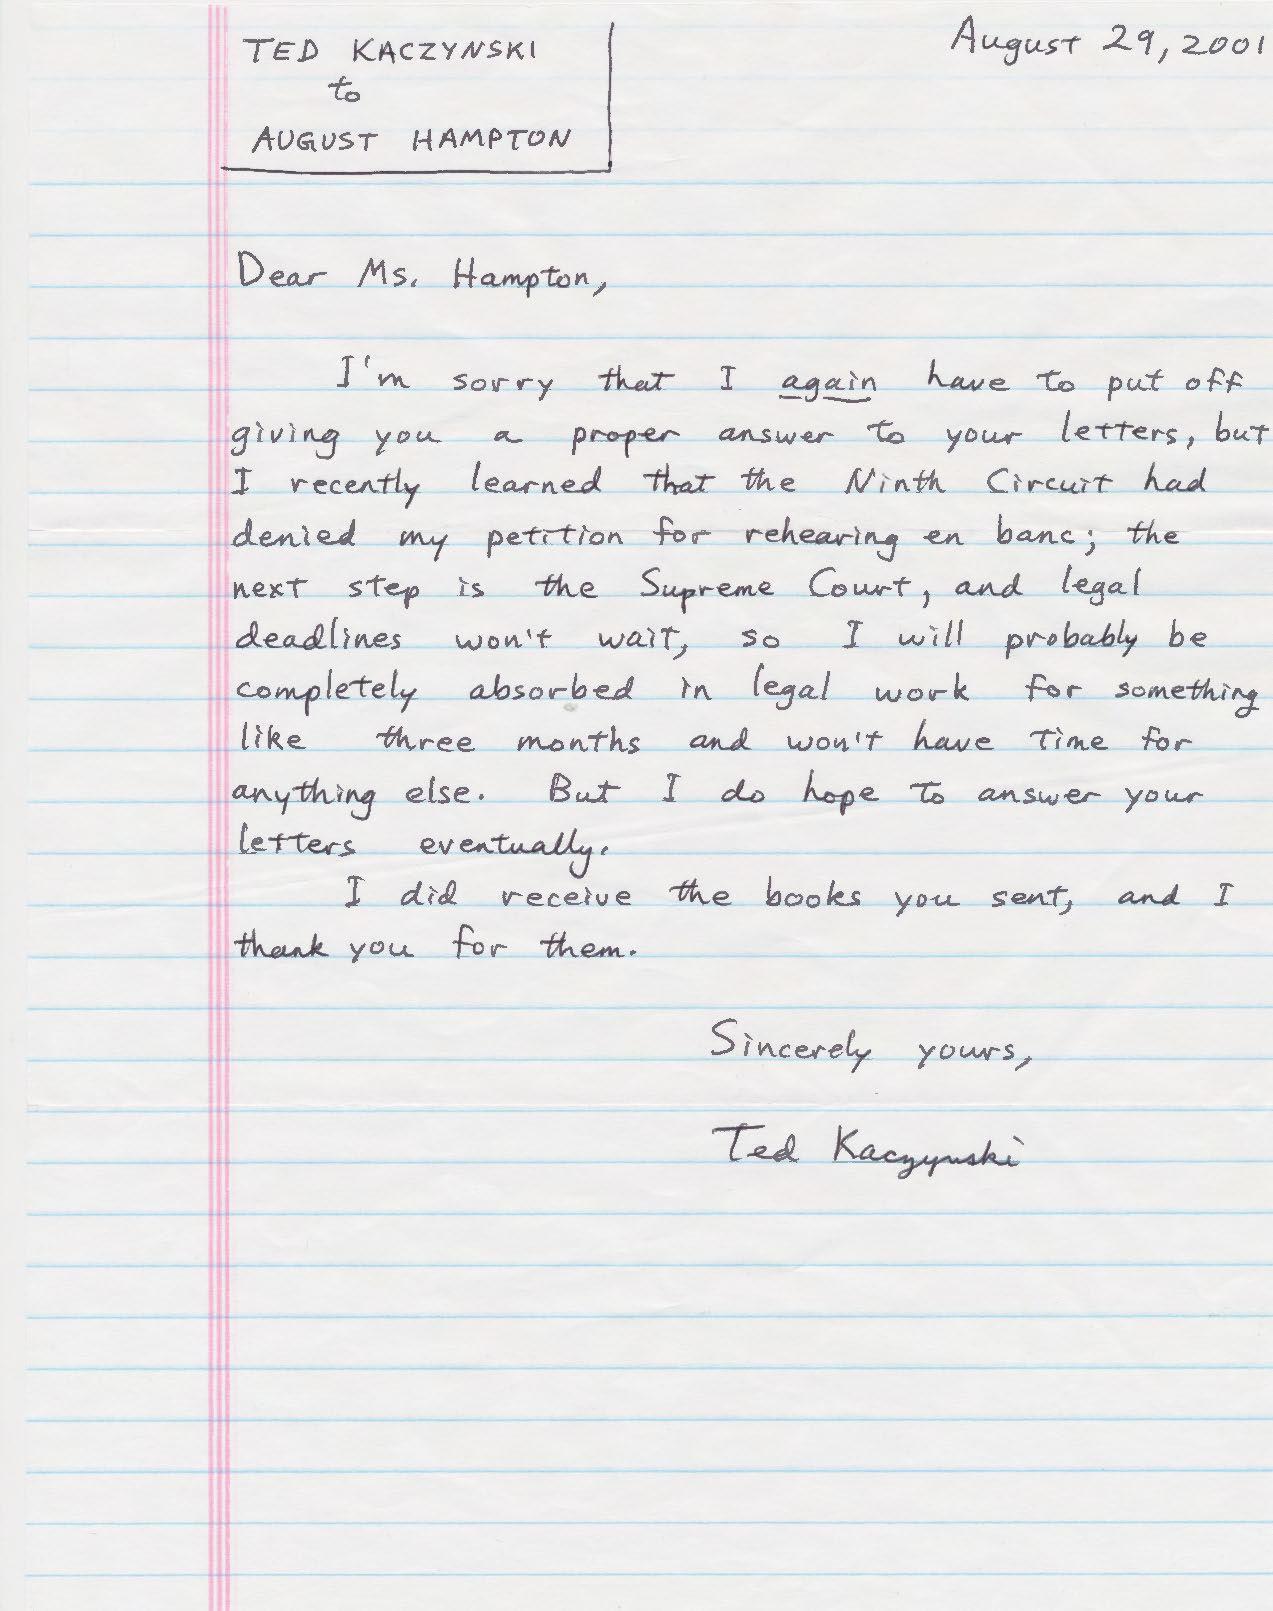 TED KACZYNSKI
to
AUGUST HAMPTON
August 29, 2001
Dear Ms. Hampton,
I'm sorry that I again have to put off
giving you a proper answer to your letters, but
I recently learned that the Ninth Circuit had
denied my petition for rehearing en banc; the
next step is the Supreme Court, and legal
deadlines won't wait, so I will probably be
completely absorbed in legal work for something
like three months and won't have time for
anything else. But I do hope to answer your
letters eventually.
I did receive the books you sent, and I
thank you for them.
Sincerely yours,
Ted Kaczynski